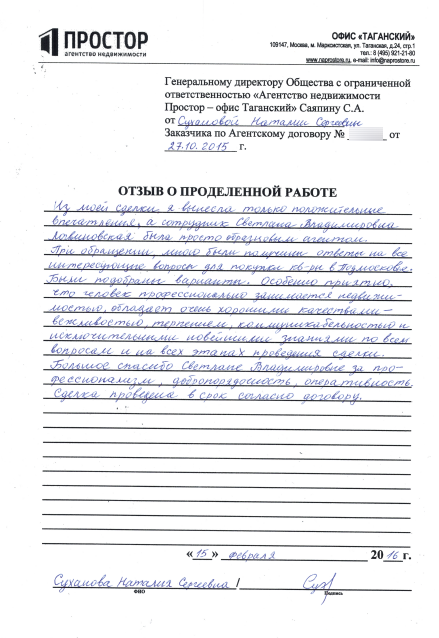 ПРОСТОР
агентство недвижимости
ОФИС «ТАГАНСКИЙ»
109147, Москва, м. Марксистская, ул. Таганская, д.24, стр.1
тел.: 8 (495) 921-21-80
www.naprostore.ru, e-mail: info@naprostore.ru
Генеральному директору Общества с ограниченной
ответственностью «Агентство недвижимости
Простор – офис Таганский» Саяпину С.А.
от Сухановой Наталии Сергевны
Заказчика по Агентскому договору № от
27.10.2015 г.
ОТЗЫВ О ПРОДЕЛЕННОЙ РАБОТЕ
Из моей сделки я вынесла только положительные
впечатления, а сотрудник Светлана Владимировна
была просто образцовым агентом.
При обращении, мною были получены ответы на все
интересующие вопросы для покупки кв-ры в Подмосковье.
Были подобраны варианты. Особенно приятно,
что человек профессионально занимается недвижи-
мостью, обладает очень хорошими качествами -
вежливостью, терпением, коммуникабельностью и
исключительными новейшими знаниями по всем
вопросам и на всех этапах проведения сделки.
Большое спасибо Светлане Владимировне за про-
фессионализм, добропорядочность, оперативность.
Сделка проведена в срок согласно договору.
« 15 » февраля 2016 г.
Суханова Наталия Сергеевна /
ФИО Подпись